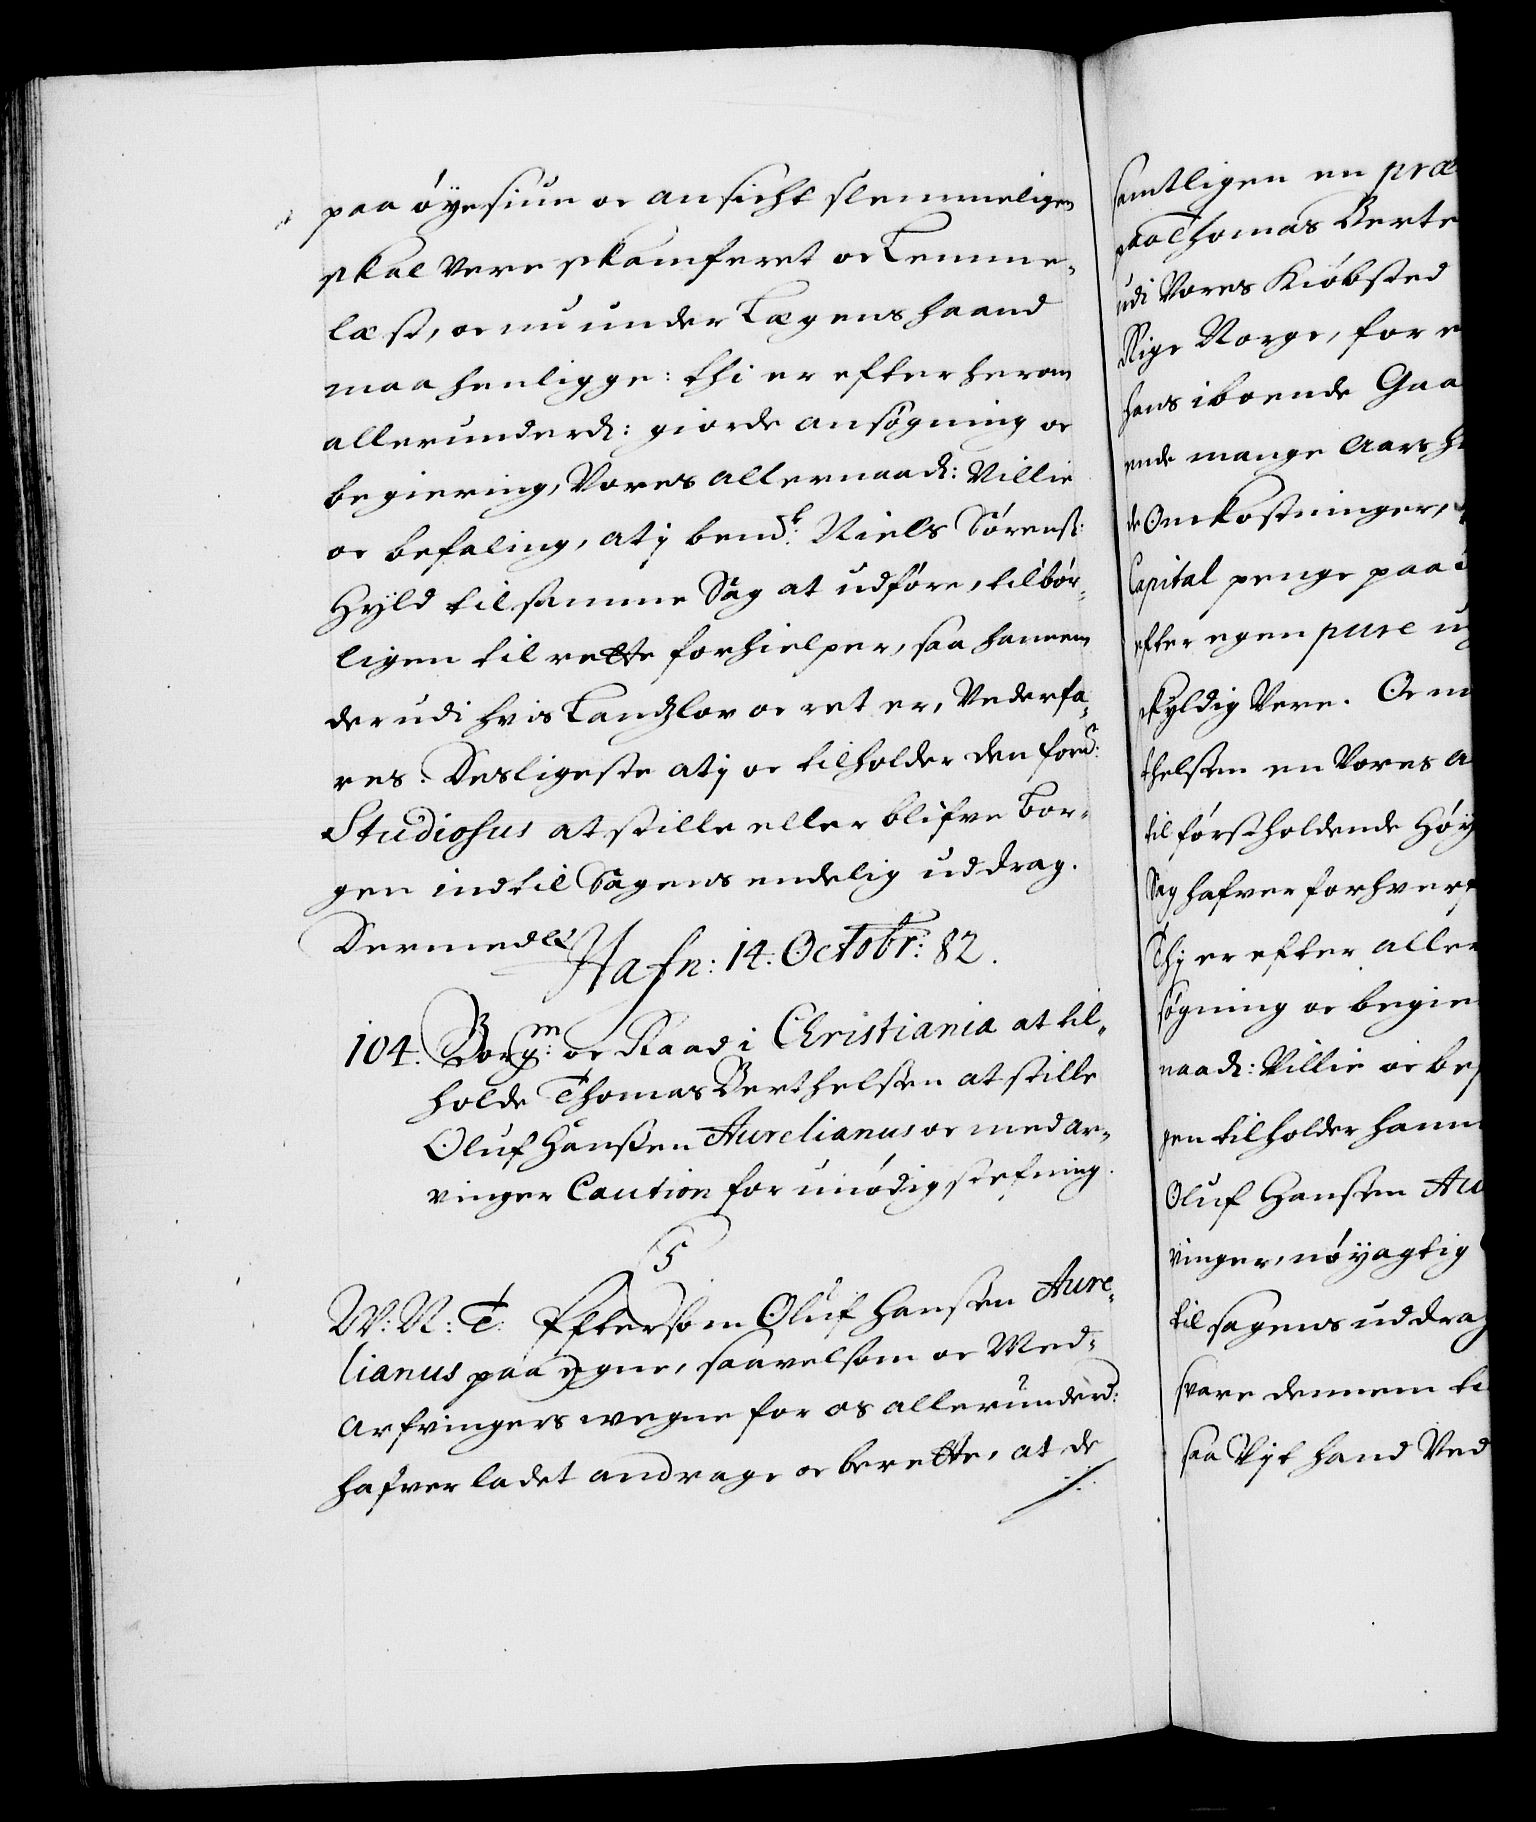 paa øyesiun oc ansicht slemmeligen
skal være skamferet oc Lemme-
læst, oc nu under Lægens haand
maa henligge: thi er efter herom
allerunderd: giorde ansøgning oc
begiering, Vores allernaad: Villie
oc befaling, at j bend:te Niels Sørens:
Hyld til samme Sag at udføre, tilbør-
ligen til rette forhielper, saa hannem
derudi hvis Landzlov oc ret er, Vederfa-
res. Desligeste at j oc tilholder den forn:
Studiosus at stille eller blifve Bor-
gen indtil Sagens endelig uddrag.
Dermed &
Hafn: 14. Octobr: 82.
104. Borgm: oc Raad i Christiania at til-
holde Thomas Berthelsen at stille
Oluf Hanssen Aurelianus oc medar-
vinger Caution for unødig stefning.
C5
W: N: T: Eftersom Oluf Hanssen Aure-
lianus paa egne, saavelsom oc Med-
arfvingers vegne for os allerunderd:
hafver ladet andrage oc berette, at de
samtligen en præ
paa Thomas Berte
udi Vores Kiøbsted
Rige Norge, for e
hans iboende Gaa
ende mange Aars h
de Omkostninger,
Capital penge paa i
efter egen pure u
skyldig Vere. Oc m
thelsen en Vores a
til først holdende Høy
Sag hafver forhverf
Thj er efter aller
søgning oc begie
naad: Villie oc bef
gen tilholder hann
Oluf Hanssen Au
vinger, nøyagtig
til sagens uddrag
svare dennem ti
saa Vijt hand Ved